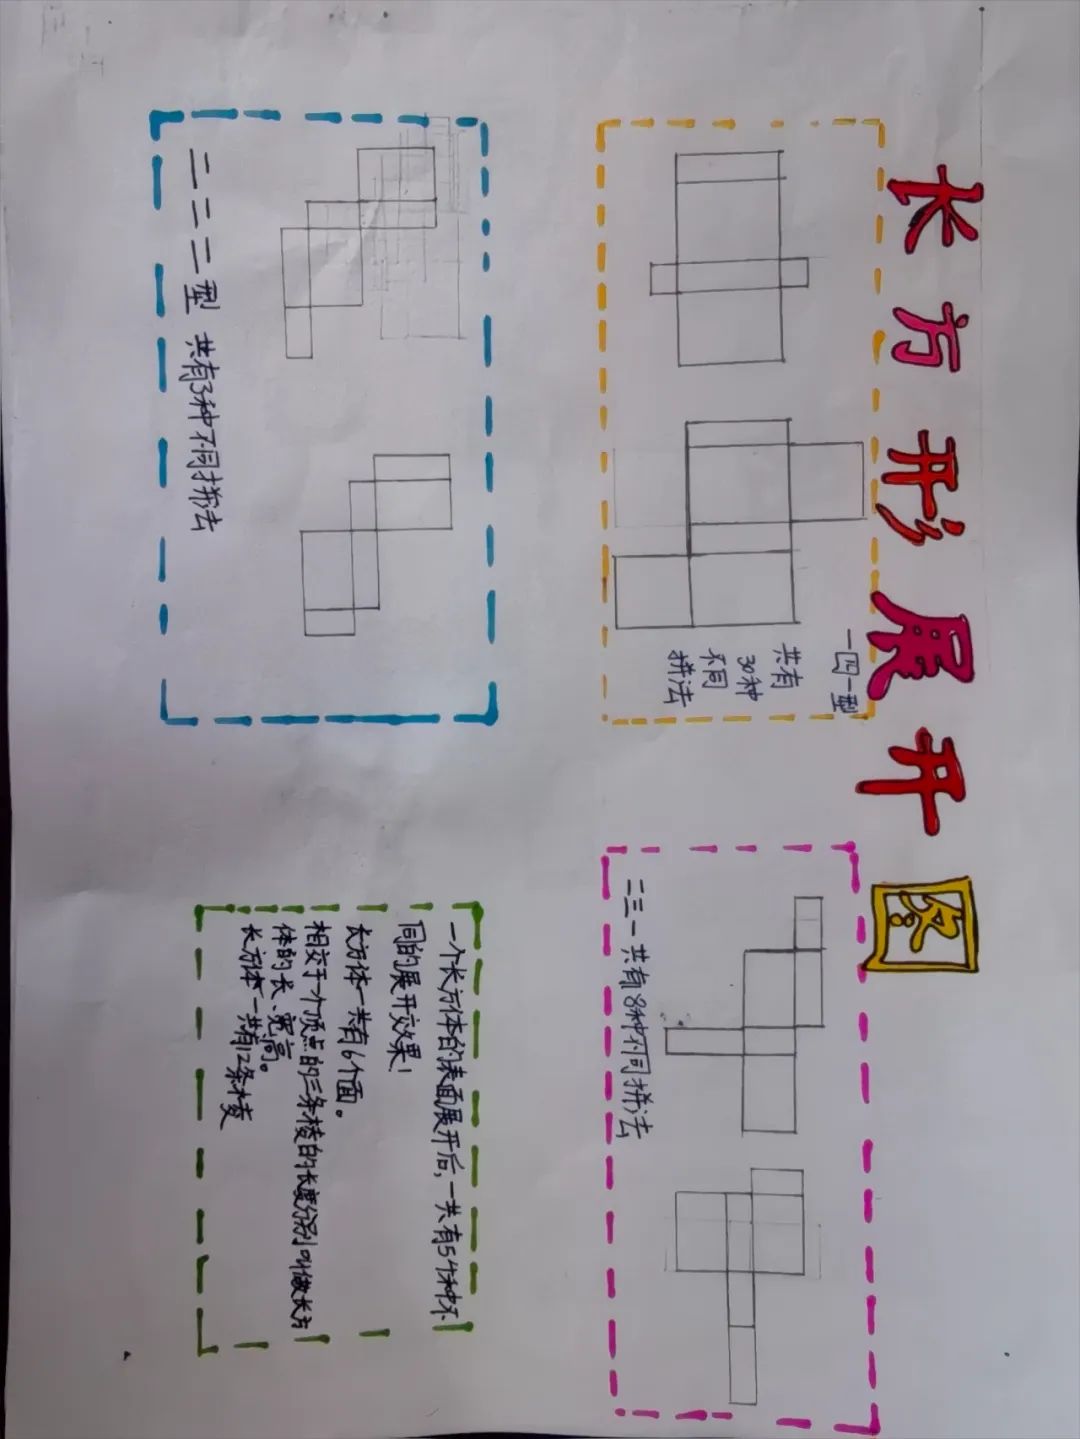 长方形展开图
一四一型
共有
30种
不同
拼法
二三一共有18种不同拼法
二二二型 共有3种不同拼法
一个长方体的表面展开后，一共有54种不
同的展开效果！
长方体一共有6个面。
相交于一个顶点的三条棱的长度分别叫做长方
体的长、宽、高。
长方体一共有12条棱